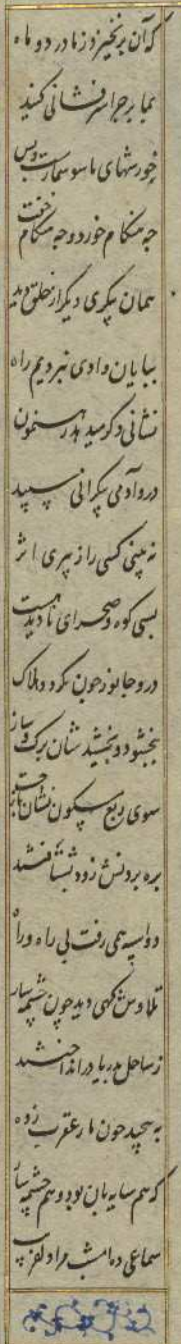 که آن برنخیزد ز ما در دو ماه
بما بر چرا سرفشانی کنید
خورشهای ما سوسمارست و بس
چه هنگام خورد و چه هنگام خفت
همان پیکری دیگر از خلق دید
بپایان وادی نبردیم راه
نشانی دگر میدهد رهنمون
درو آدمی پیکرانی سپید
نه بینی کسی را ز پیری اثر
بسی کوه و صحرای نادیده هست
درو جانور چون نگردد هلاک
ببخشود و بخشید شان برگ و ساز
سوی ربع مسکون نشان باز جست
بره بردنش زود بشتافتند
دو اسپه همی رفت بی راه و راه
تلاوشگهی دید چون چشمه سار
ز ساحل بدریا در انداختند
به پیچید چون مار عقرب زده
که هم سایه بان بود و هم چشمه سار
سماعی ده امشب مرا دلفریب